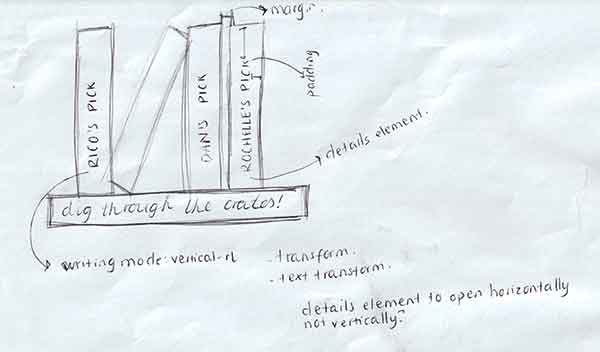 margin.
RICO'S PICK
DAN'S PICK
ROCHELLE'S PICK
padding
details element.
dig through the crates!
writing mode: vertical-rl
- transform.
- text transform.
details element to open horizontally
not vertically?